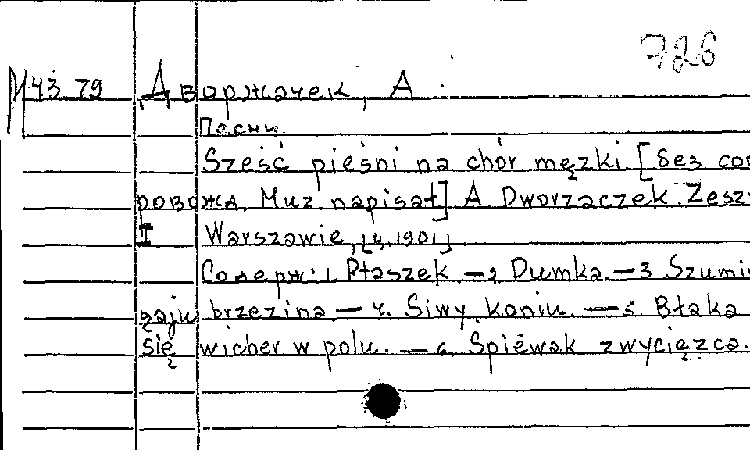 726
М43 79 Дворжачек, А.
Песни
Sześć pieśni na chór męzki [без соп
ровожд. Muz. napisał] A Dworzaczek. Zesz
I Warszawie, [ц. 1901]
Содерж: 1 Ptaszek — 2 Dumka. — 3 Szumi
gaju brzezina — 4. Siwy koniu. — 5 Błąka
się wicher w polu. — 6 Śpiewak zwycięzca.